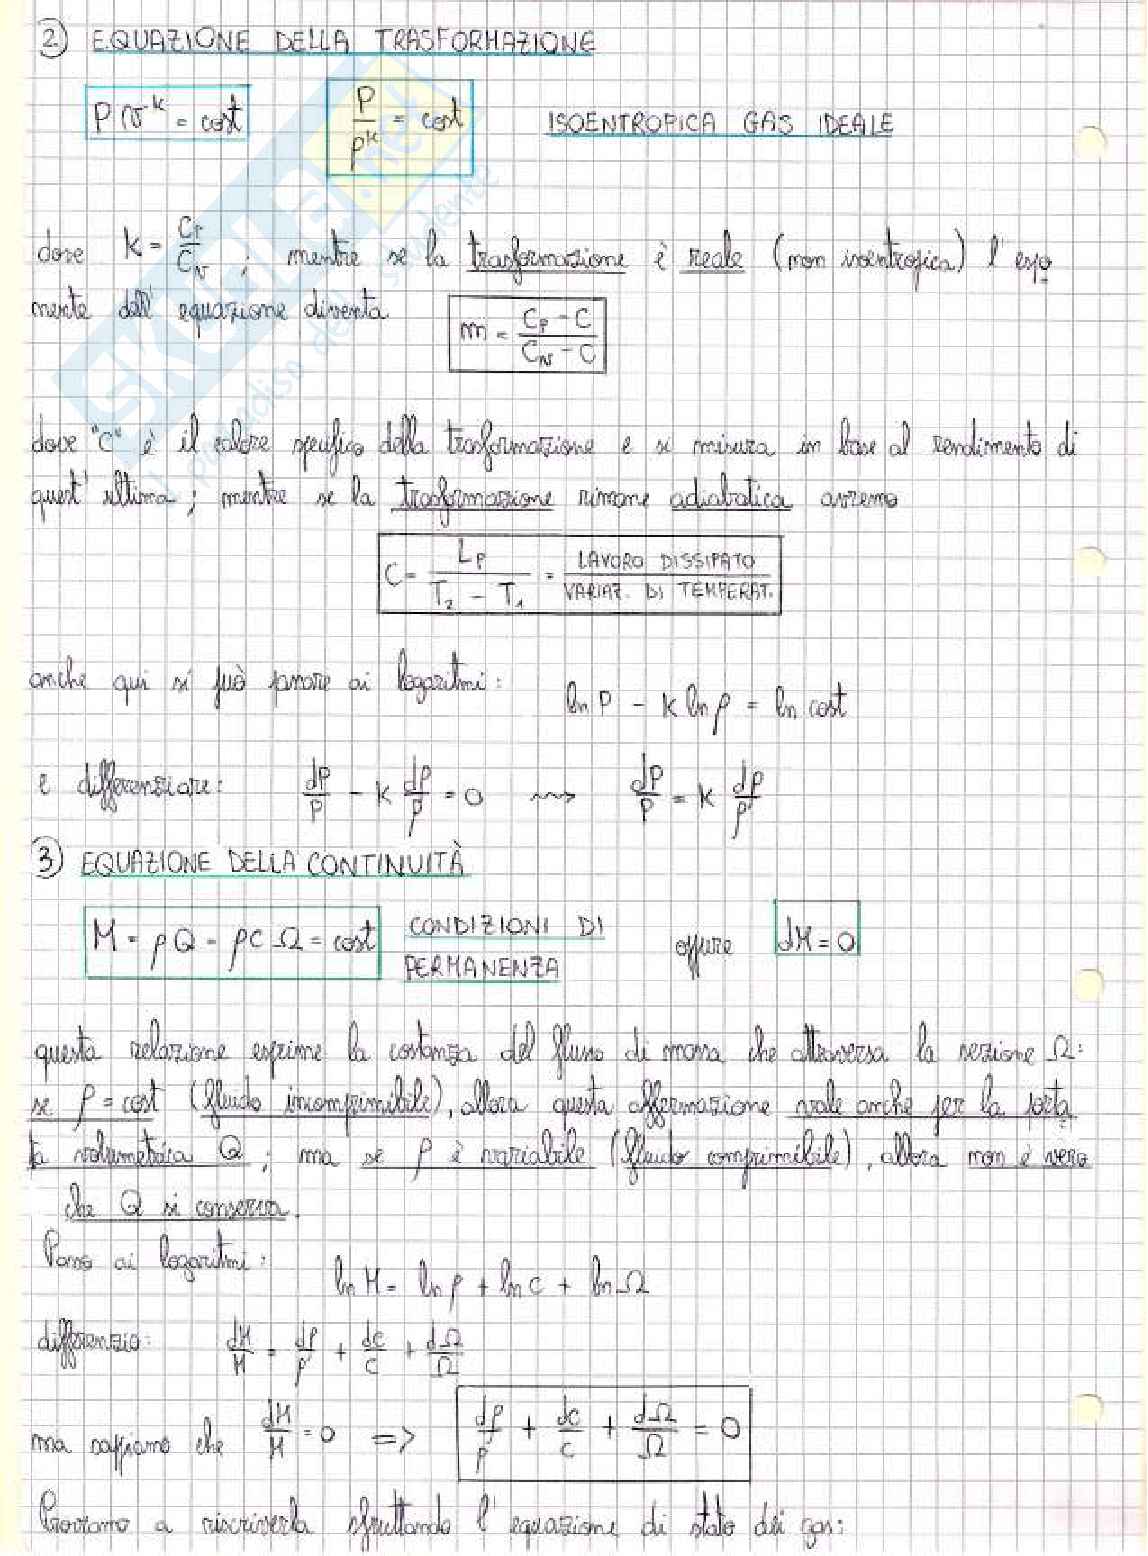 2) EQUAZIONE DELLA TRASFORMAZIONE
P v^k = cost    P/ρ^k = cost    ISOENTROPICA GAS IDEALE
dove k = Cp/Cv ; mentre se la trasformazione è reale (non isoentropica) l'espo
nente dell'equazione diventa    m = (Cp - C)/(Cv - C)
dove "C" è il calore specifico della trasformazione e si misura in base al rendimento di
quest'ultima ; mentre se la trasformazione rimane adiabatica avremo
C = Lp/(T2 - T1) = LAVORO DISSIPATO/VARIAZ. DI TEMPERAT.
anche qui si può passare ai logaritmi:    ln P - k ln ρ = ln cost
e differenziare:    dP/P - k dρ/ρ = 0  ⟿  dP/P = k dρ/ρ
3) EQUAZIONE DELLA CONTINUITÀ
M = ρQ = ρcΩ = cost    CONDIZIONI DI PERMANENZA    oppure    dM = 0
questa relazione esprime la costanza del flusso di massa che attraversa la sezione Ω:
se ρ = cost (fluido incomprimibile), allora questa affermazione vale anche per la porta
ta volumetrica Q ; ma se ρ è variabile (fluido comprimibile), allora non è vero
che Q si conserva.
Passo ai logaritmi:    ln M = ln ρ + ln c + ln Ω
differenzio:    dM/M = dρ/ρ + dc/c + dΩ/Ω
ma sappiamo che dM/M = 0  =>  dρ/ρ + dc/c + dΩ/Ω = 0
Proviamo a riscriverla sfruttando l'equazione di stato dei gas:
SKUOLA.net
il paradiso dello studente